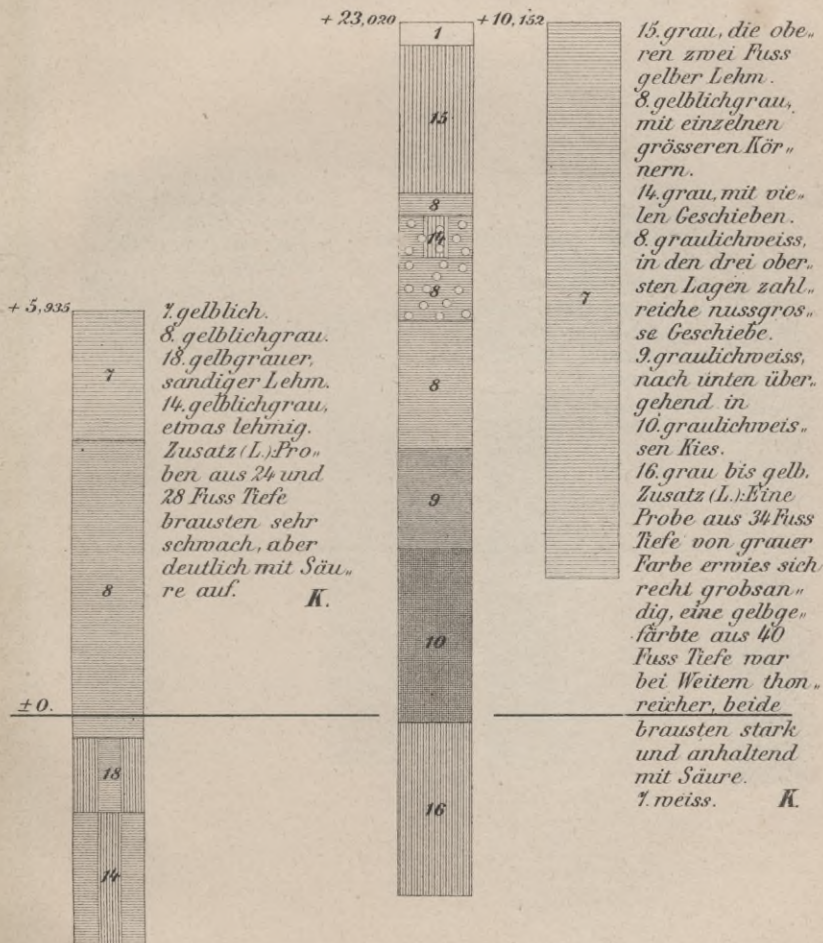 + 5,935
7
8
18
14
7. gelblich.
8. gelblichgrau.
18. gelbgrauer,
sandiger Lehm.
14. gelblichgrau,
etwas lehmig.
Zusatz (L.): Pro„
ben aus 24 und
28 Fuss Tiefe
brausten sehr
schwach, aber
deutlich mit Säu„
re auf. K.
±0.
+ 23,020
1
15
8
14
8
8
9
10
16
+ 10,152
7
15. grau, die obe„
ren zwei Fuss
gelber Lehm.
8. gelblichgrau,
mit einzelnen
grösseren Kör„
nern.
14. grau, mit vie„
len Geschieben.
8. graulichweiss,
in den drei ober„
sten Lagen zahl„
reiche nussgros„
se Geschiebe.
9. graulichweiss,
nach unten über„
gehend in
10. graulichweis„
sen Kies.
16. grau bis gelb.
Zusatz (L.): Eine
Probe aus 34 Fuss
Tiefe von grauer
Farbe erwies sich
recht grobsan„
dig, eine gelbge„
färbte aus 40
Fuss Tiefe war
bei Weitem thon„
reicher, beide
brausten stark
und anhaltend
mit Säure.
7. weiss. K.